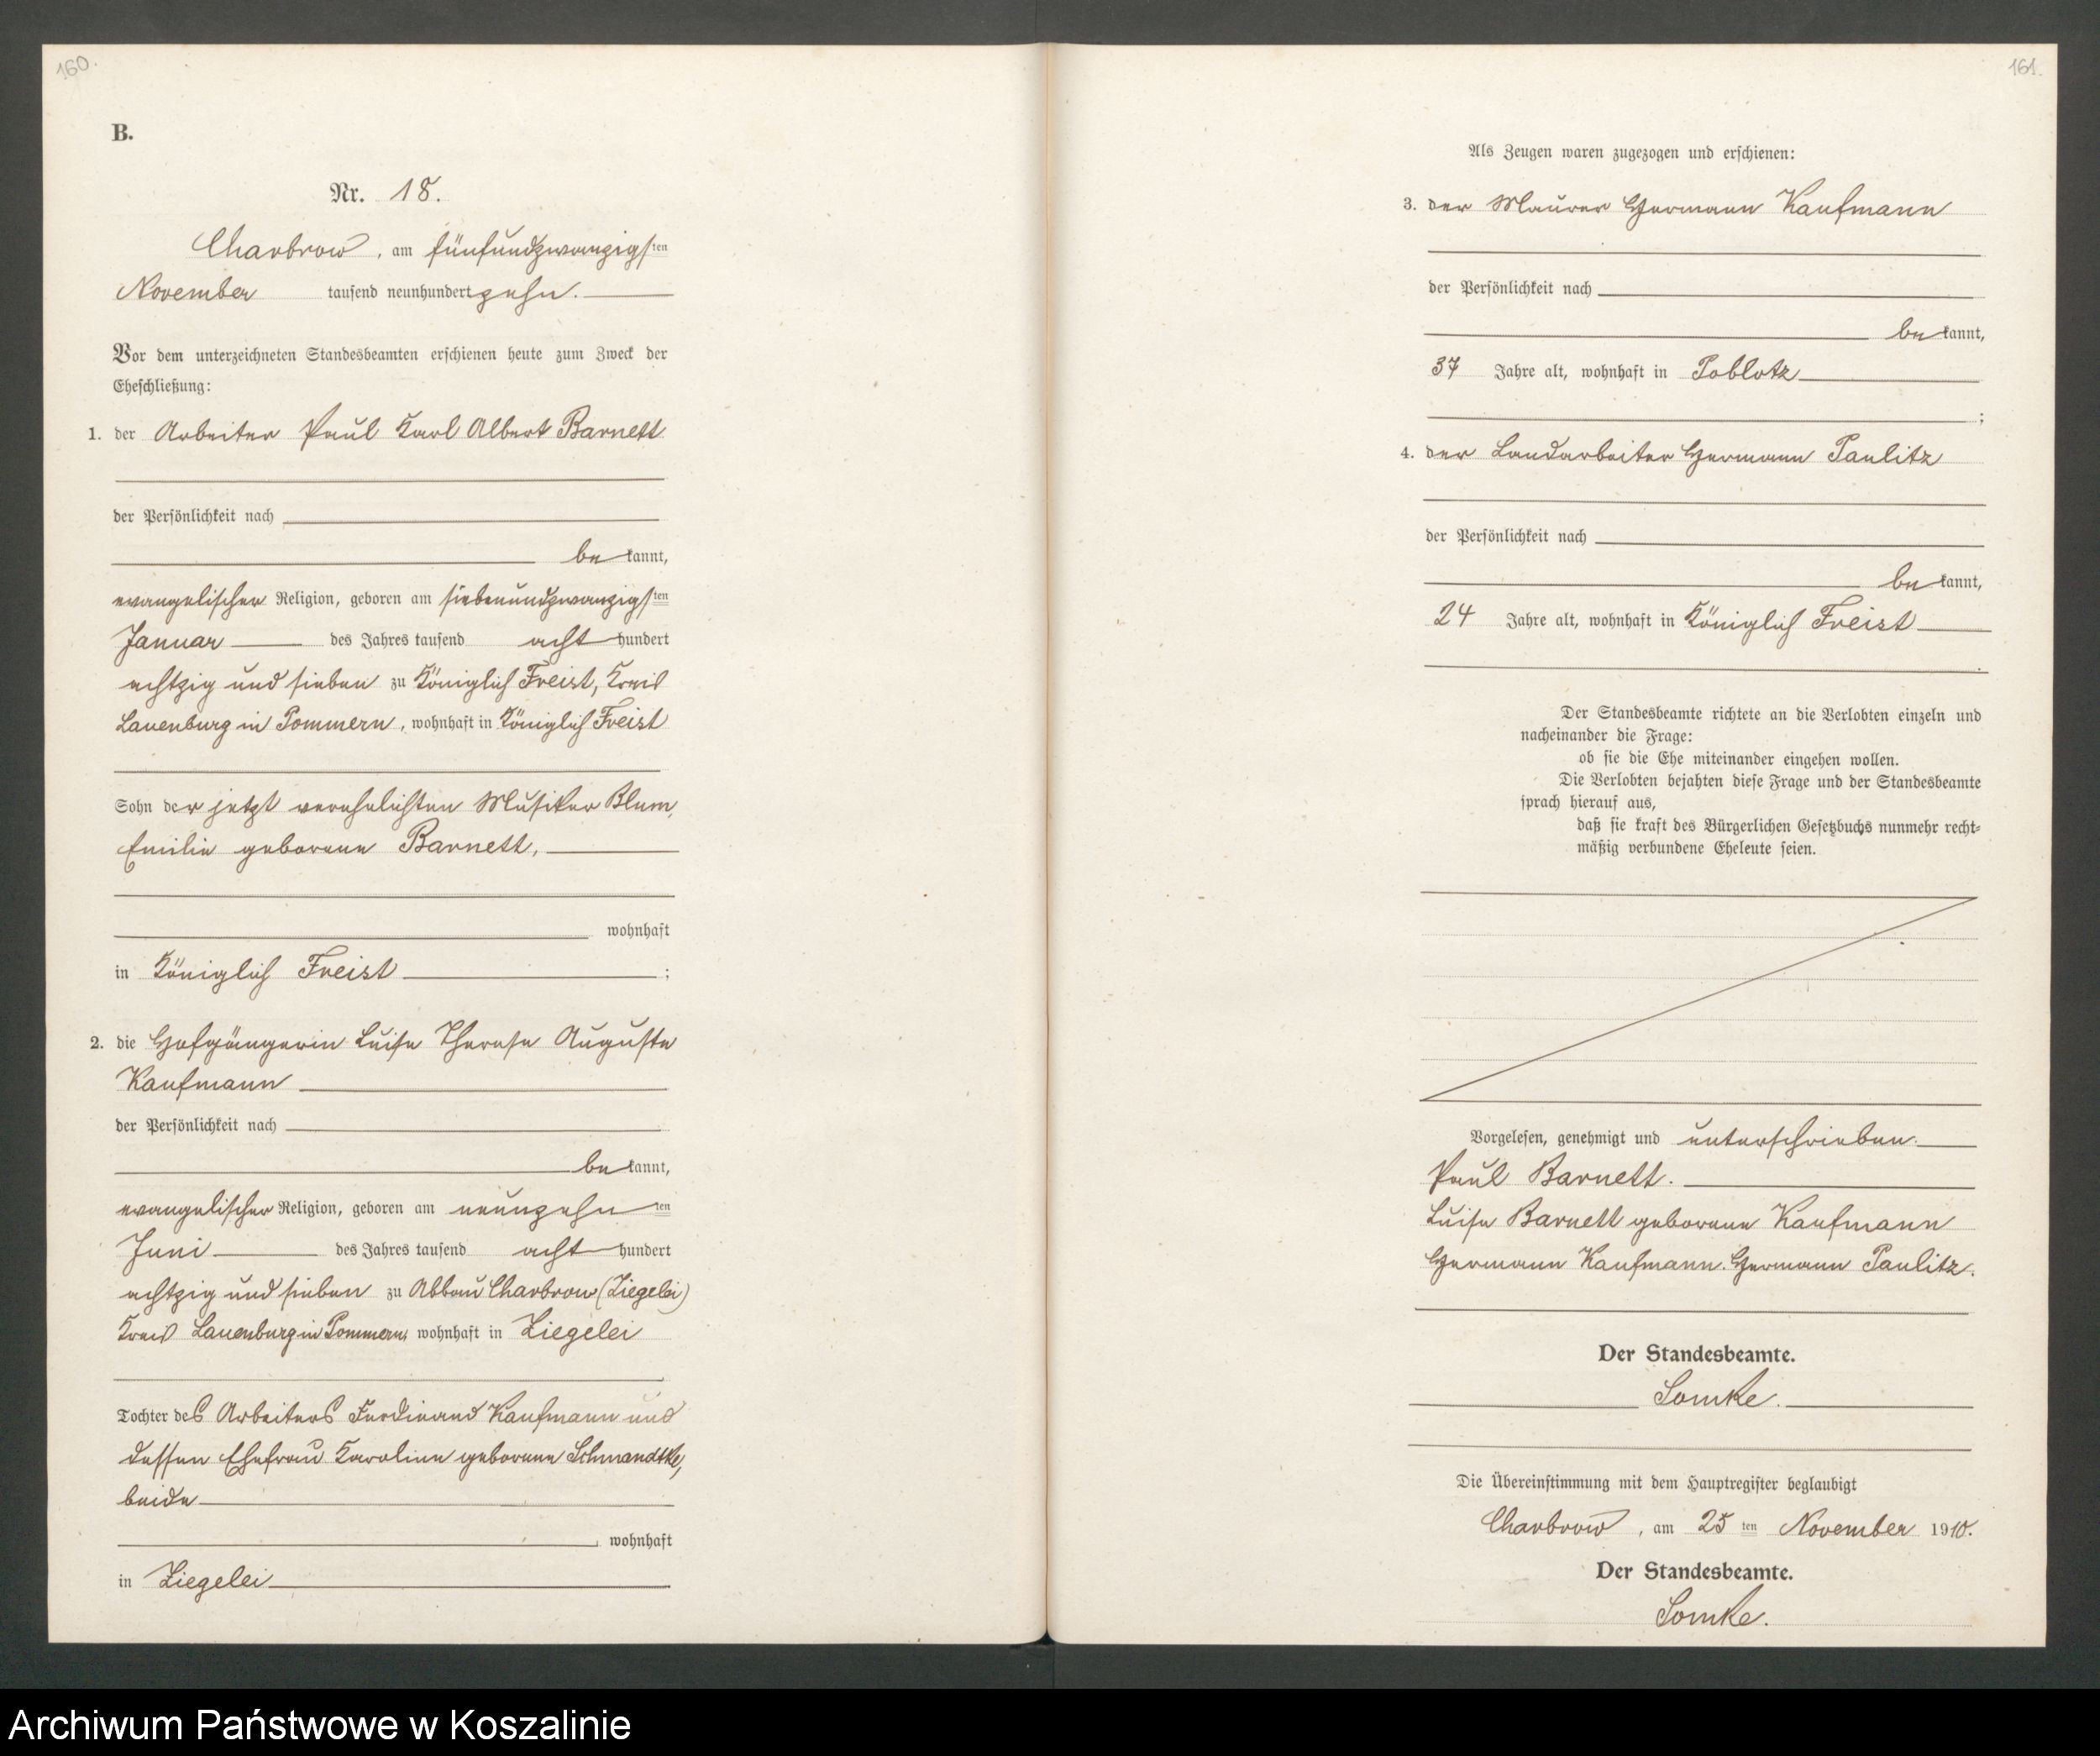 160.
B.
Nr. 18.
Charbrow, am fünfundzwanzigsten
November tausend neunhundert zehn.
Vor dem unterzeichneten Standesbeamten erschienen heute zum Zweck der
Eheschließung:
1. der Arbeiter Paul Karl Albert Barnett
der Persönlichkeit nach
be kannt,
evangelischer Religion, geboren am siebenundzwanzigsten
Januar des Jahres tausend acht hundert
achtzig und sieben zu Königlich Freist, Kreis
Lauenburg in Pommern, wohnhaft in Königlich Freist
Sohn der jetzt verehelichten Musiker Blum,
Emilie geborene Barnett,
wohnhaft
in Königlich Freist ;
2. die Hofgängerin Luise Therese Auguste
Kaufmann
der Persönlichkeit nach
be kannt,
evangelischer Religion, geboren am neunzehn ten
Juni des Jahres tausend acht hundert
achtzig und sieben zu Abbau Charbrow (Ziegelei)
Kreis Lauenburg in Pommern, wohnhaft in Ziegelei
Tochter des Arbeiters Ferdinand Kaufmann und
dessen Ehefrau Karoline geborene Schmandtke,
beide
wohnhaft
in Ziegelei
161.
Als Zeugen waren zugezogen und erschienen:
3. der Maurer Hermann Kaufmann
der Persönlichkeit nach
be kannt,
37 Jahre alt, wohnhaft in Poblotz
;
4. der Landarbeiter Hermann Paulitz
der Persönlichkeit nach
be kannt,
24 Jahre alt, wohnhaft in Königlich Freist
.
Der Standesbeamte richtete an die Verlobten einzeln und
nacheinander die Frage:
ob sie die Ehe miteinander eingehen wollen.
Die Verlobten bejahten diese Frage und der Standesbeamte
sprach hierauf aus,
daß sie kraft des Bürgerlichen Gesetzbuchs nunmehr recht-
mäßig verbundene Eheleute seien.
Vorgelesen, genehmigt und unterschrieben.
Paul Barnett.
Luise Barnett geborene Kaufmann
Hermann Kaufmann. Hermann Paulitz.
Der Standesbeamte.
Lomke.
Die Übereinstimmung mit dem Hauptregister beglaubigt
Charbrow, am 25 ten November 1910.
Der Standesbeamte.
Lomke.
Archiwum Państwowe w Koszalinie